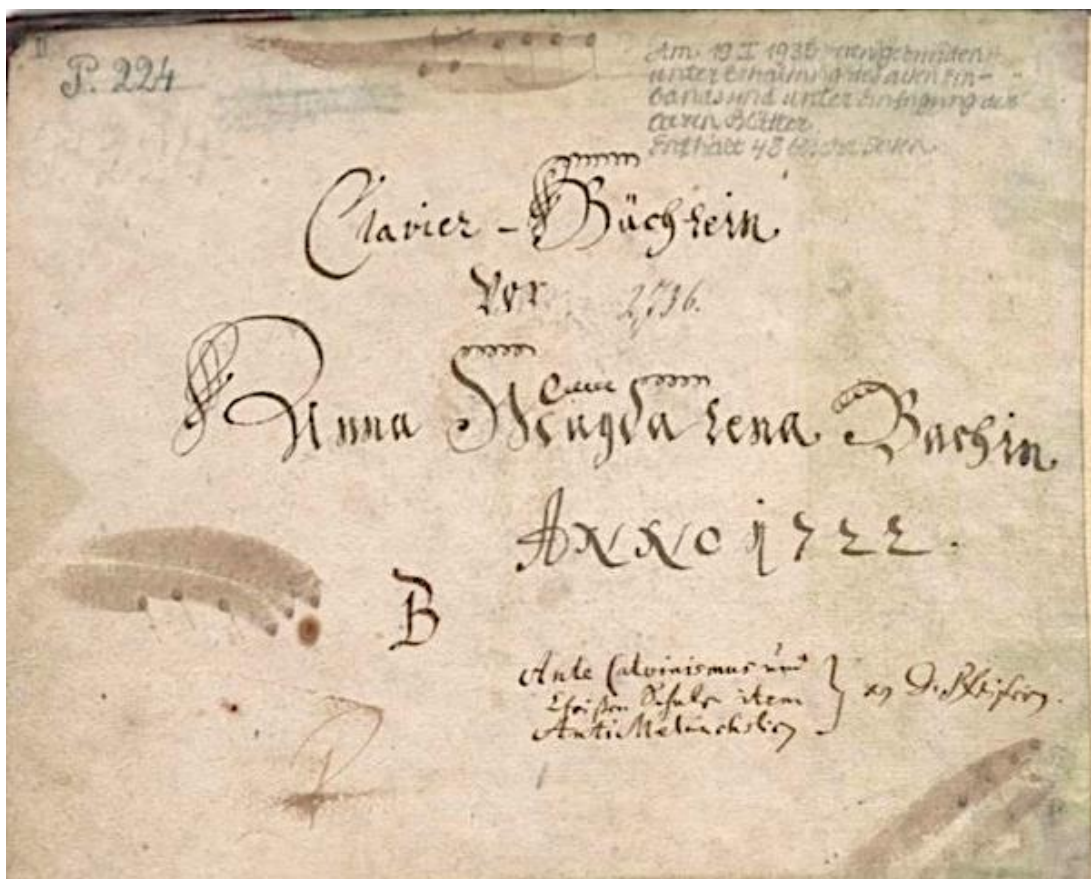 P. 224
Am 19 I 1936 neu gebunden
unter Erhaltung des alten Ein-
bands und unter Einfügung der
leeren Blätter.
Enthält 48
Clavier-Büchlein
vor
Anna Magdalena Bachin
ANNO 1722.
B
Ante Calvinismus und
Christen Schule item
Anti Melancholicus